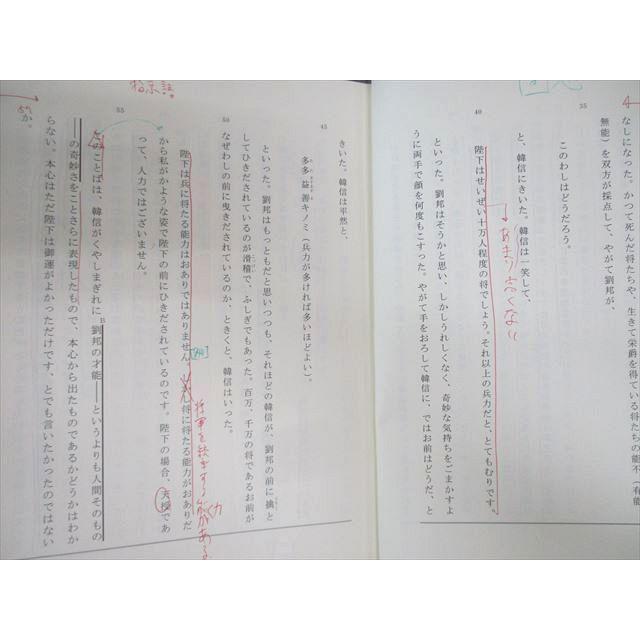 なしになった。かつて死んだ将たちや、生きて栄爵を得ている将たちの能不(有能
無能)を双方が採点して、やがて劉邦が、
35
このわしはどうだろう。
と、韓信にきいた。韓信は一笑して、
あまり高くない
陛下はせいぜい十万人程度の将でしょう。それ以上の兵力だと、とてもむりです。
40
といった。劉邦はそうかと思い、しかしうれしくなく、奇妙な気持ちをごまかすよ
うに両手で顔を何度もこすった。やがて手をおろして韓信に、ではお前はどうだ、と
きいた。韓信は平然と、
45
多多益善キノミ(兵力が多ければ多いほどよい)。
といった。劉邦はもっともだと思いつつも、それほどの韓信が、劉邦の前に擒と
してひきだされているのが滑稽で、ふしぎでもあった。百万、千万の将であるお前が
なぜわしの前に曳きだされているのか、ときくと、韓信はいった。
50
陛下は兵に将たる能力はおありではありません。しかし将に将たる能力がおありだ
将軍を統率する能力がある。
から私がかような姿で陛下の前にひきだされているのです。陛下の場合、天授であ
って、人力ではございません。
55
指示語
このことばは、韓信がくやしまぎれに劉邦の才能――というよりも人間そのもの
B
――の奇妙さをことさらに表現したもので、本心から出たものであるかどうかはわか
らない。本心はただ陛下は御運がよかっただけです、とでも言いたかったのではない
か。